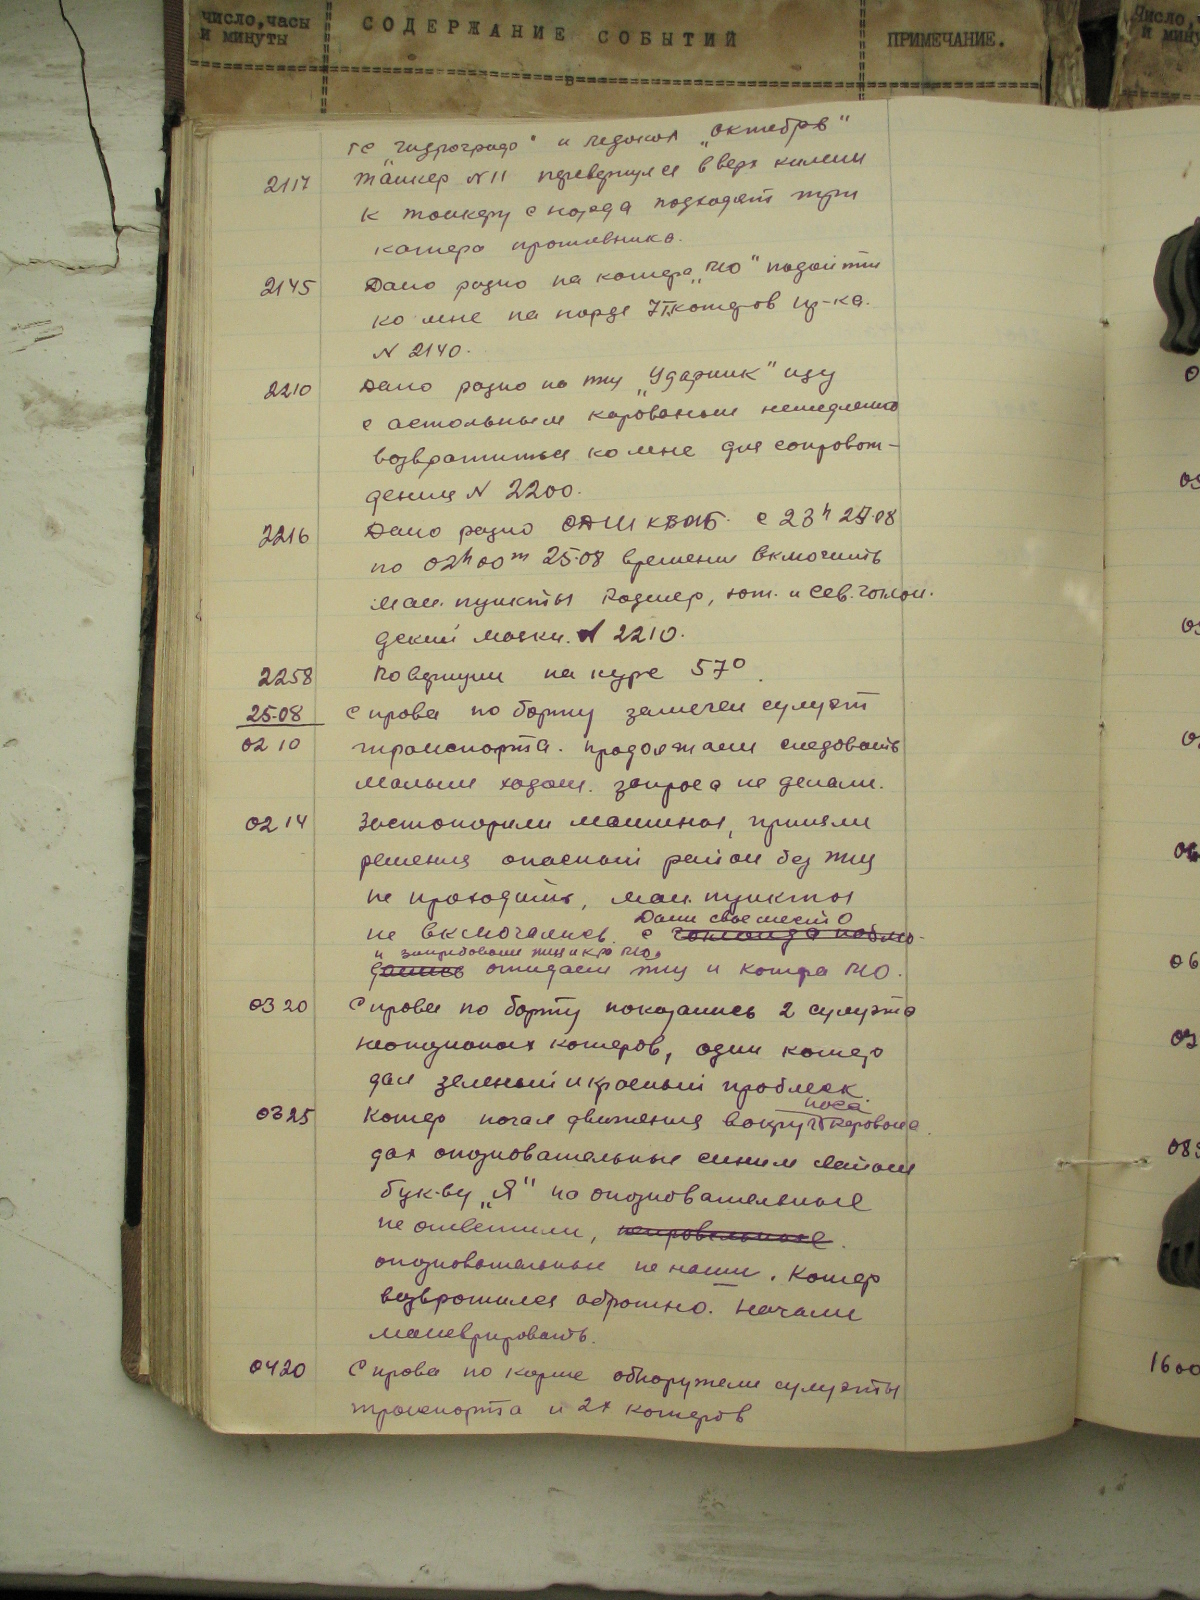 число, часы и минуты
СОДЕРЖАНИЕ СОБЫТИЙ
ПРИМЕЧАНИЕ.
ГС "Гидрограф" и ледокол "Октябрь"
2117 Танкер N11 перевернулся вверх килем
к танкеру с норда подходят три
катера противника.
2145 Дано радио на катера "МО" подойти
ко мне на норде 7 катеров пр-ка.
N 2140.
2210 Дано радио на тщ "Ударник" иду
с остальным караваном немедленно
возвратиться ко мне для сопровож-
дения N 2200.
2216 Дано радио КБФ. с 23h 24.08
по 02h00m 25.08 времени включить
ман. пункты Родшер, юж. и Сев. Гоглан-
дский маяки. N 2210.
2258 Повернули на курс 57°.
25.08 Справа по борту замечен силуэт
0210 транспорта. продолжаем следовать
малым ходом. запроса не делали.
0214 Застопорили машины, приняли
решения опасный район без тщ
не проходить, ман. пункты
не включались. Дали свое место
с Гогланда наблю-
и затребовали тщ и кра МО.
дались ожидаем тщ и катера МО.
0320 Справа по борту показались 2 силуэта
неопознаных катеров, один катер
дал зеленый и красный проблеск.
0325 Катер начал движения вокруг носа каравана
дал опознавательные синим
букву "Я" на опознавательные
не ответили, неправельные.
опознавательные не наши. Катер
возвратился обратно. Начали
маневрировать.
0420 Справа по корме обнаружели силуэты
транспорта и 2х катеров
1600